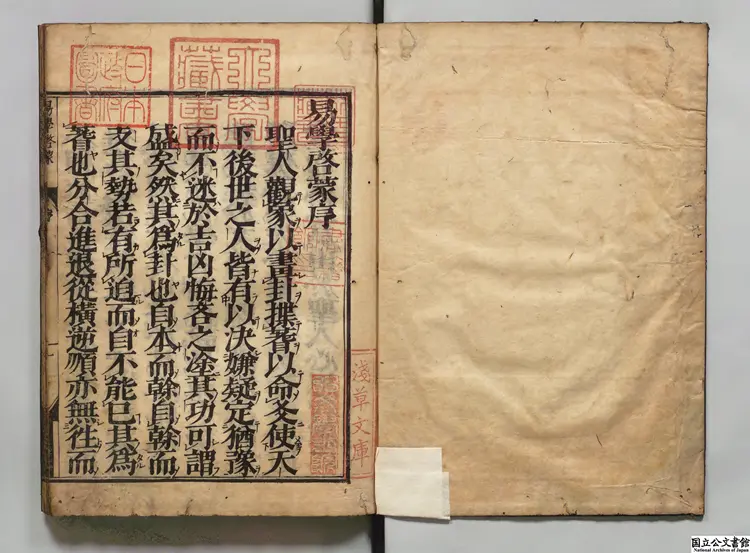 易學啓蒙序
聖人觀象以畫卦揲蓍以命爻使天
下後世之人皆有以决嫌疑定猶豫
而不迷於吉凶悔吝之塗其功可謂
盛矣然其爲卦也自本而榦自榦而
支其勢若有所迫而自不能已其爲
蓍也分合進退從橫逆順亦無往而
日本政府圖書
淺草文庫
国立公文書館
National Archives of Japan